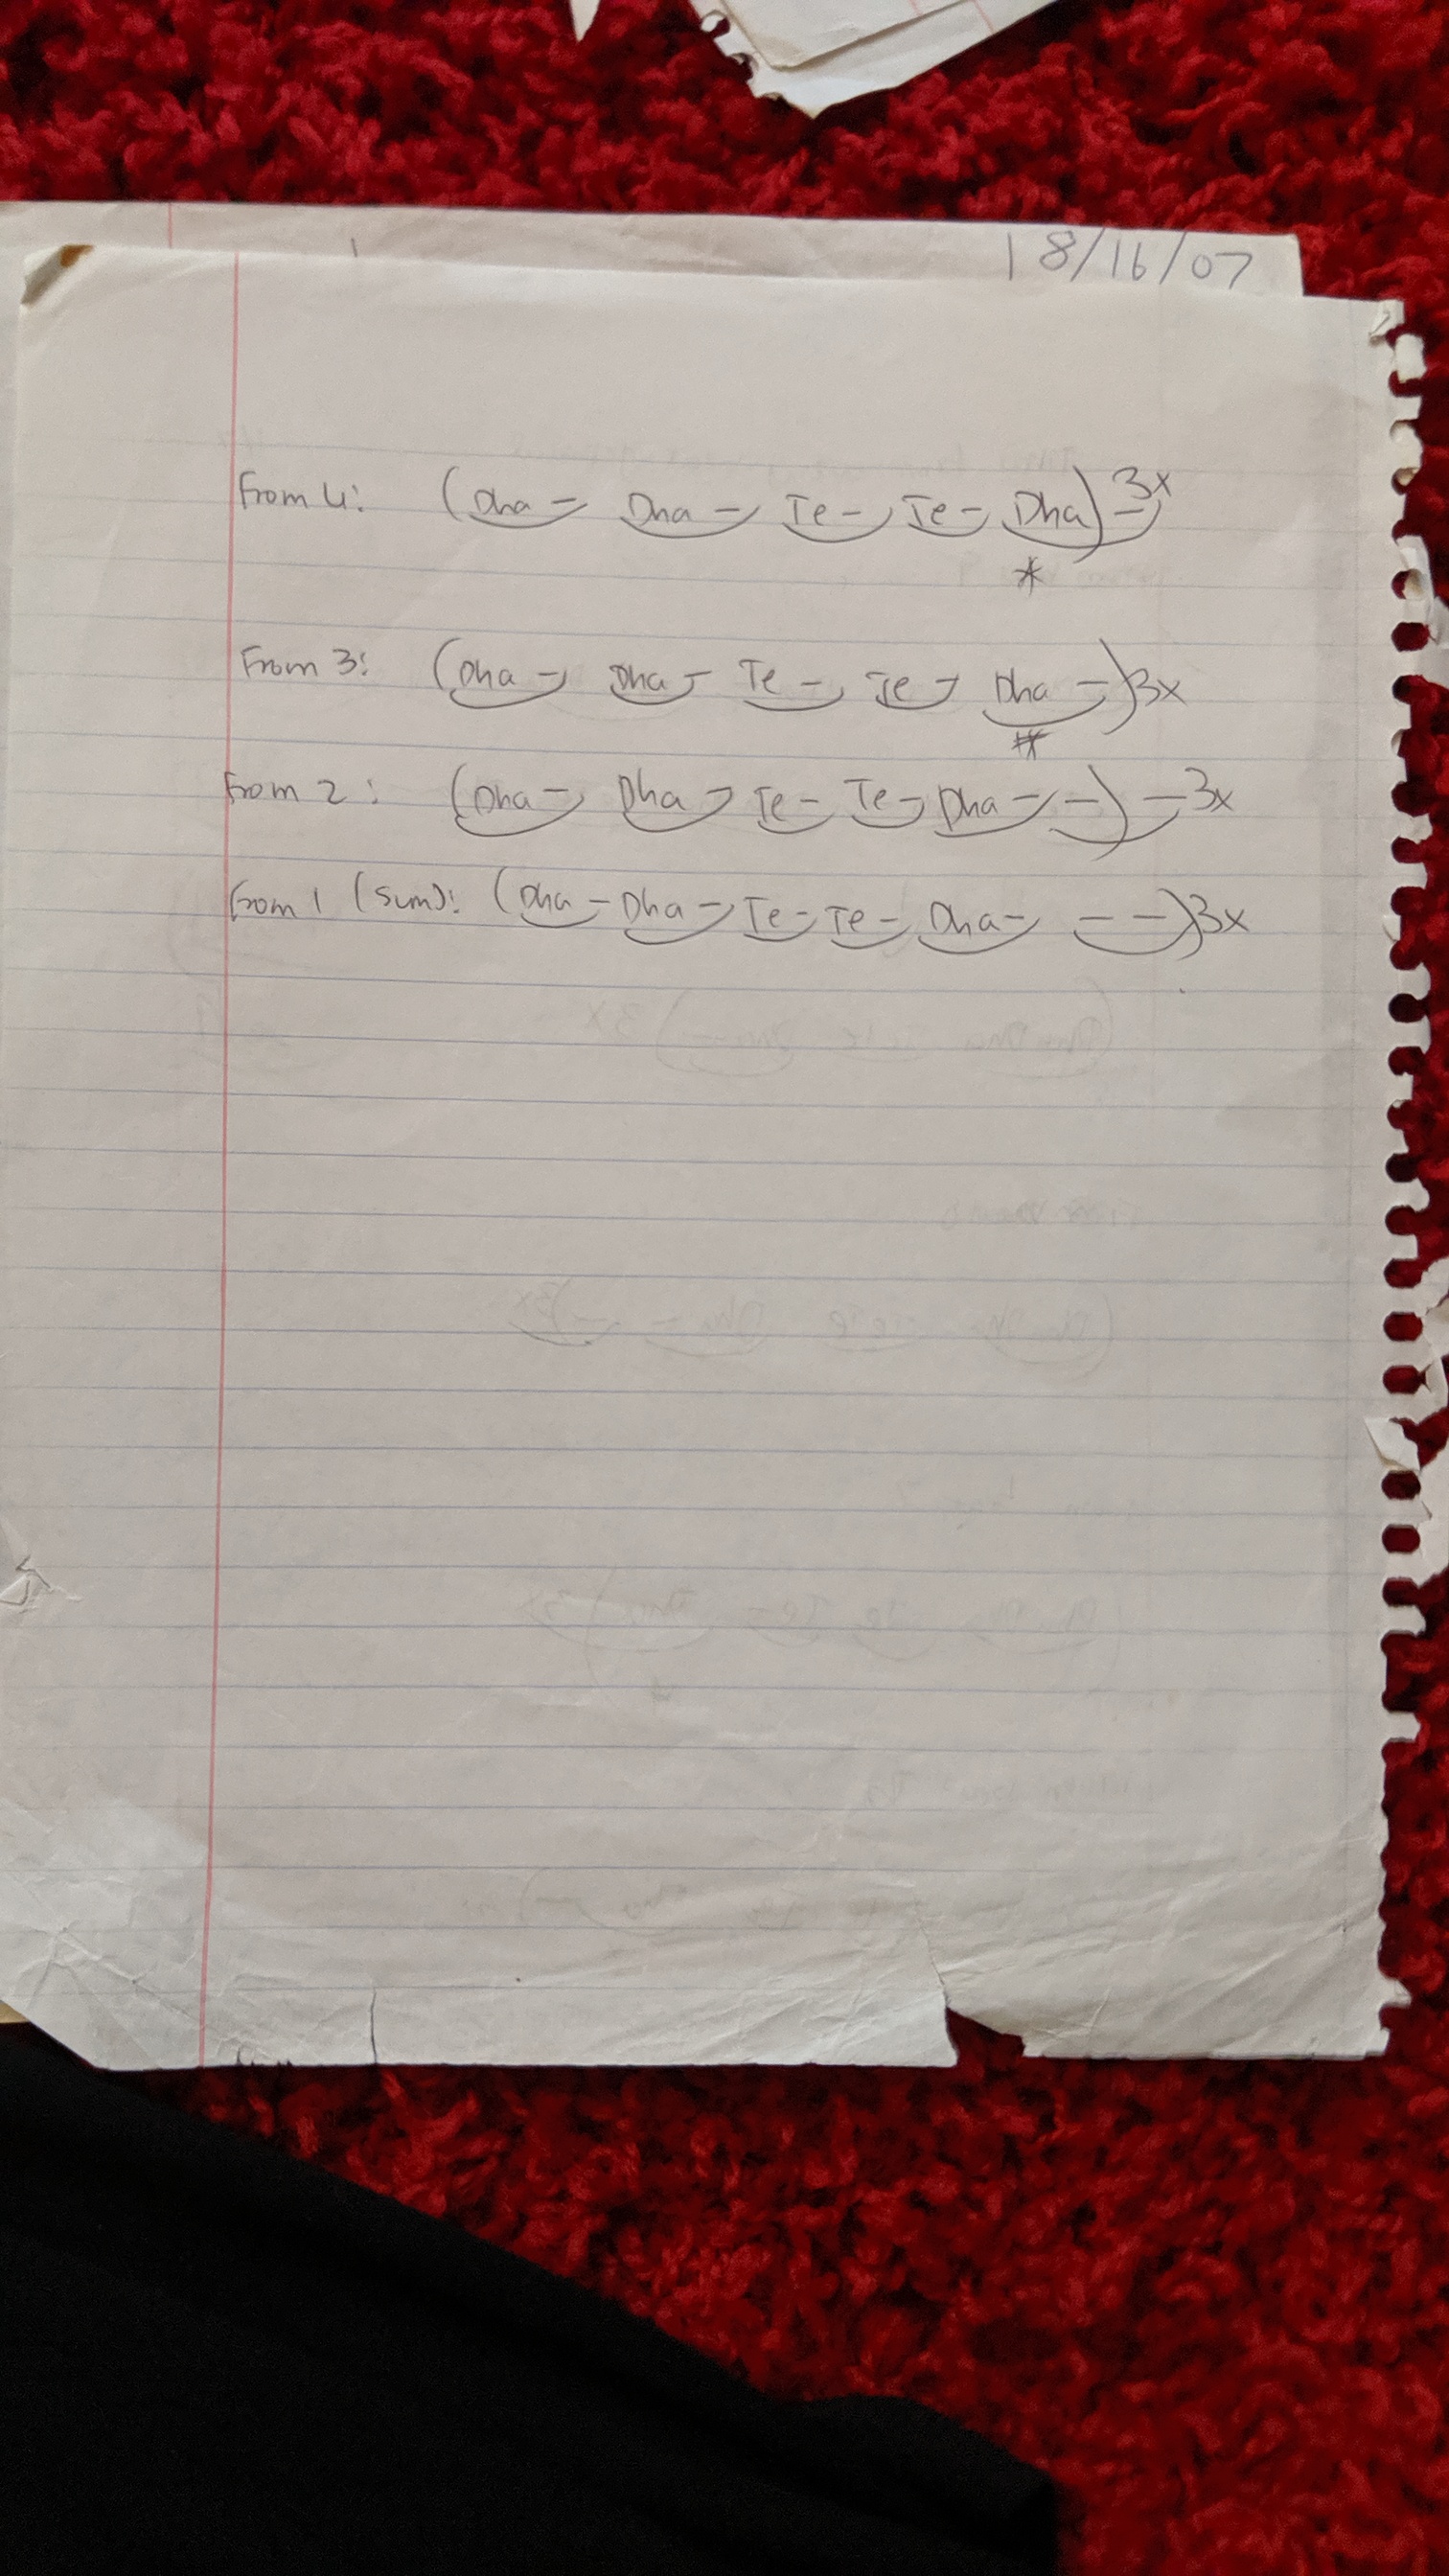 8/16/07
From 4: (Dha - Dha - Te - Te - Dha) - 3x
*
From 3: (Dha - Dha - Te - Te - Dha -) 3x
#
From 2: (Dha - Dha - Te - Te - Dha - -) - 3x
From 1 (sum): (Dha - Dha - Te - Te - Dha - - -) 3x